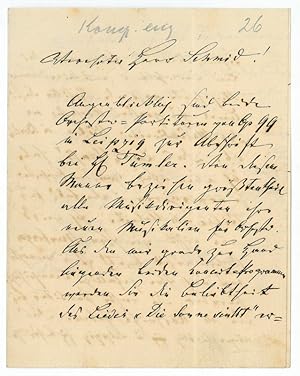 26
Verehrter Herr Schmid!
Augenblicklich sind beide
Orchester-Partituren von Op 99
in Leipzig zur Abschrift
bei H. Tümler. Von diesem
Manne beziehen größtentheils
alle Musikdirigenten ihre
neuen Musikalien für Orchst.
Aus den mir grade zur Hand
liegenden beiden Concertprogrammen
werden Sie die Beliebtheit
des Liedes „Die Sonne sinkt" er-